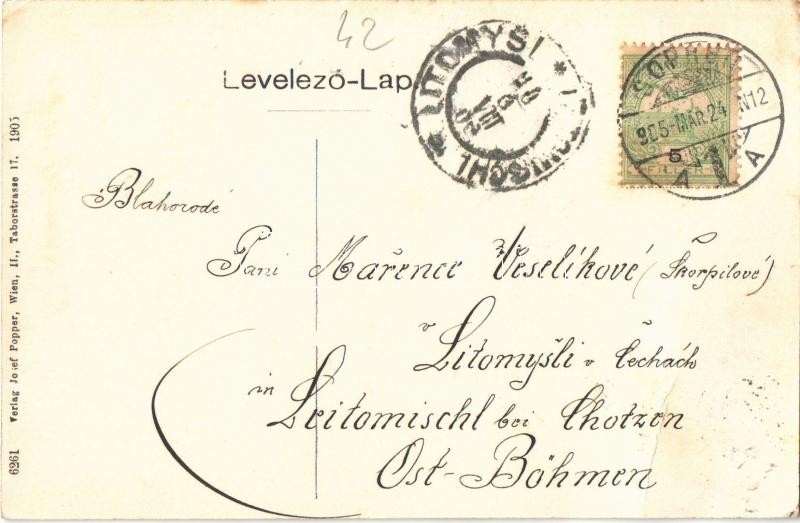 42
Levelező-Lap
LITOMYŠL
LEITOMISCHL
SOPRON
905-MAR.24 N12
5
FILLÉR
Blahorodé
Paní Mařence Veselíkové (Škorpilové)
v
Litomyšli v Čechách
in
Leitomischl bei Chotzen
Ost-Böhmen
6261 Verlag Josef Popper, Wien, II., Taborstrasse 17. 1905